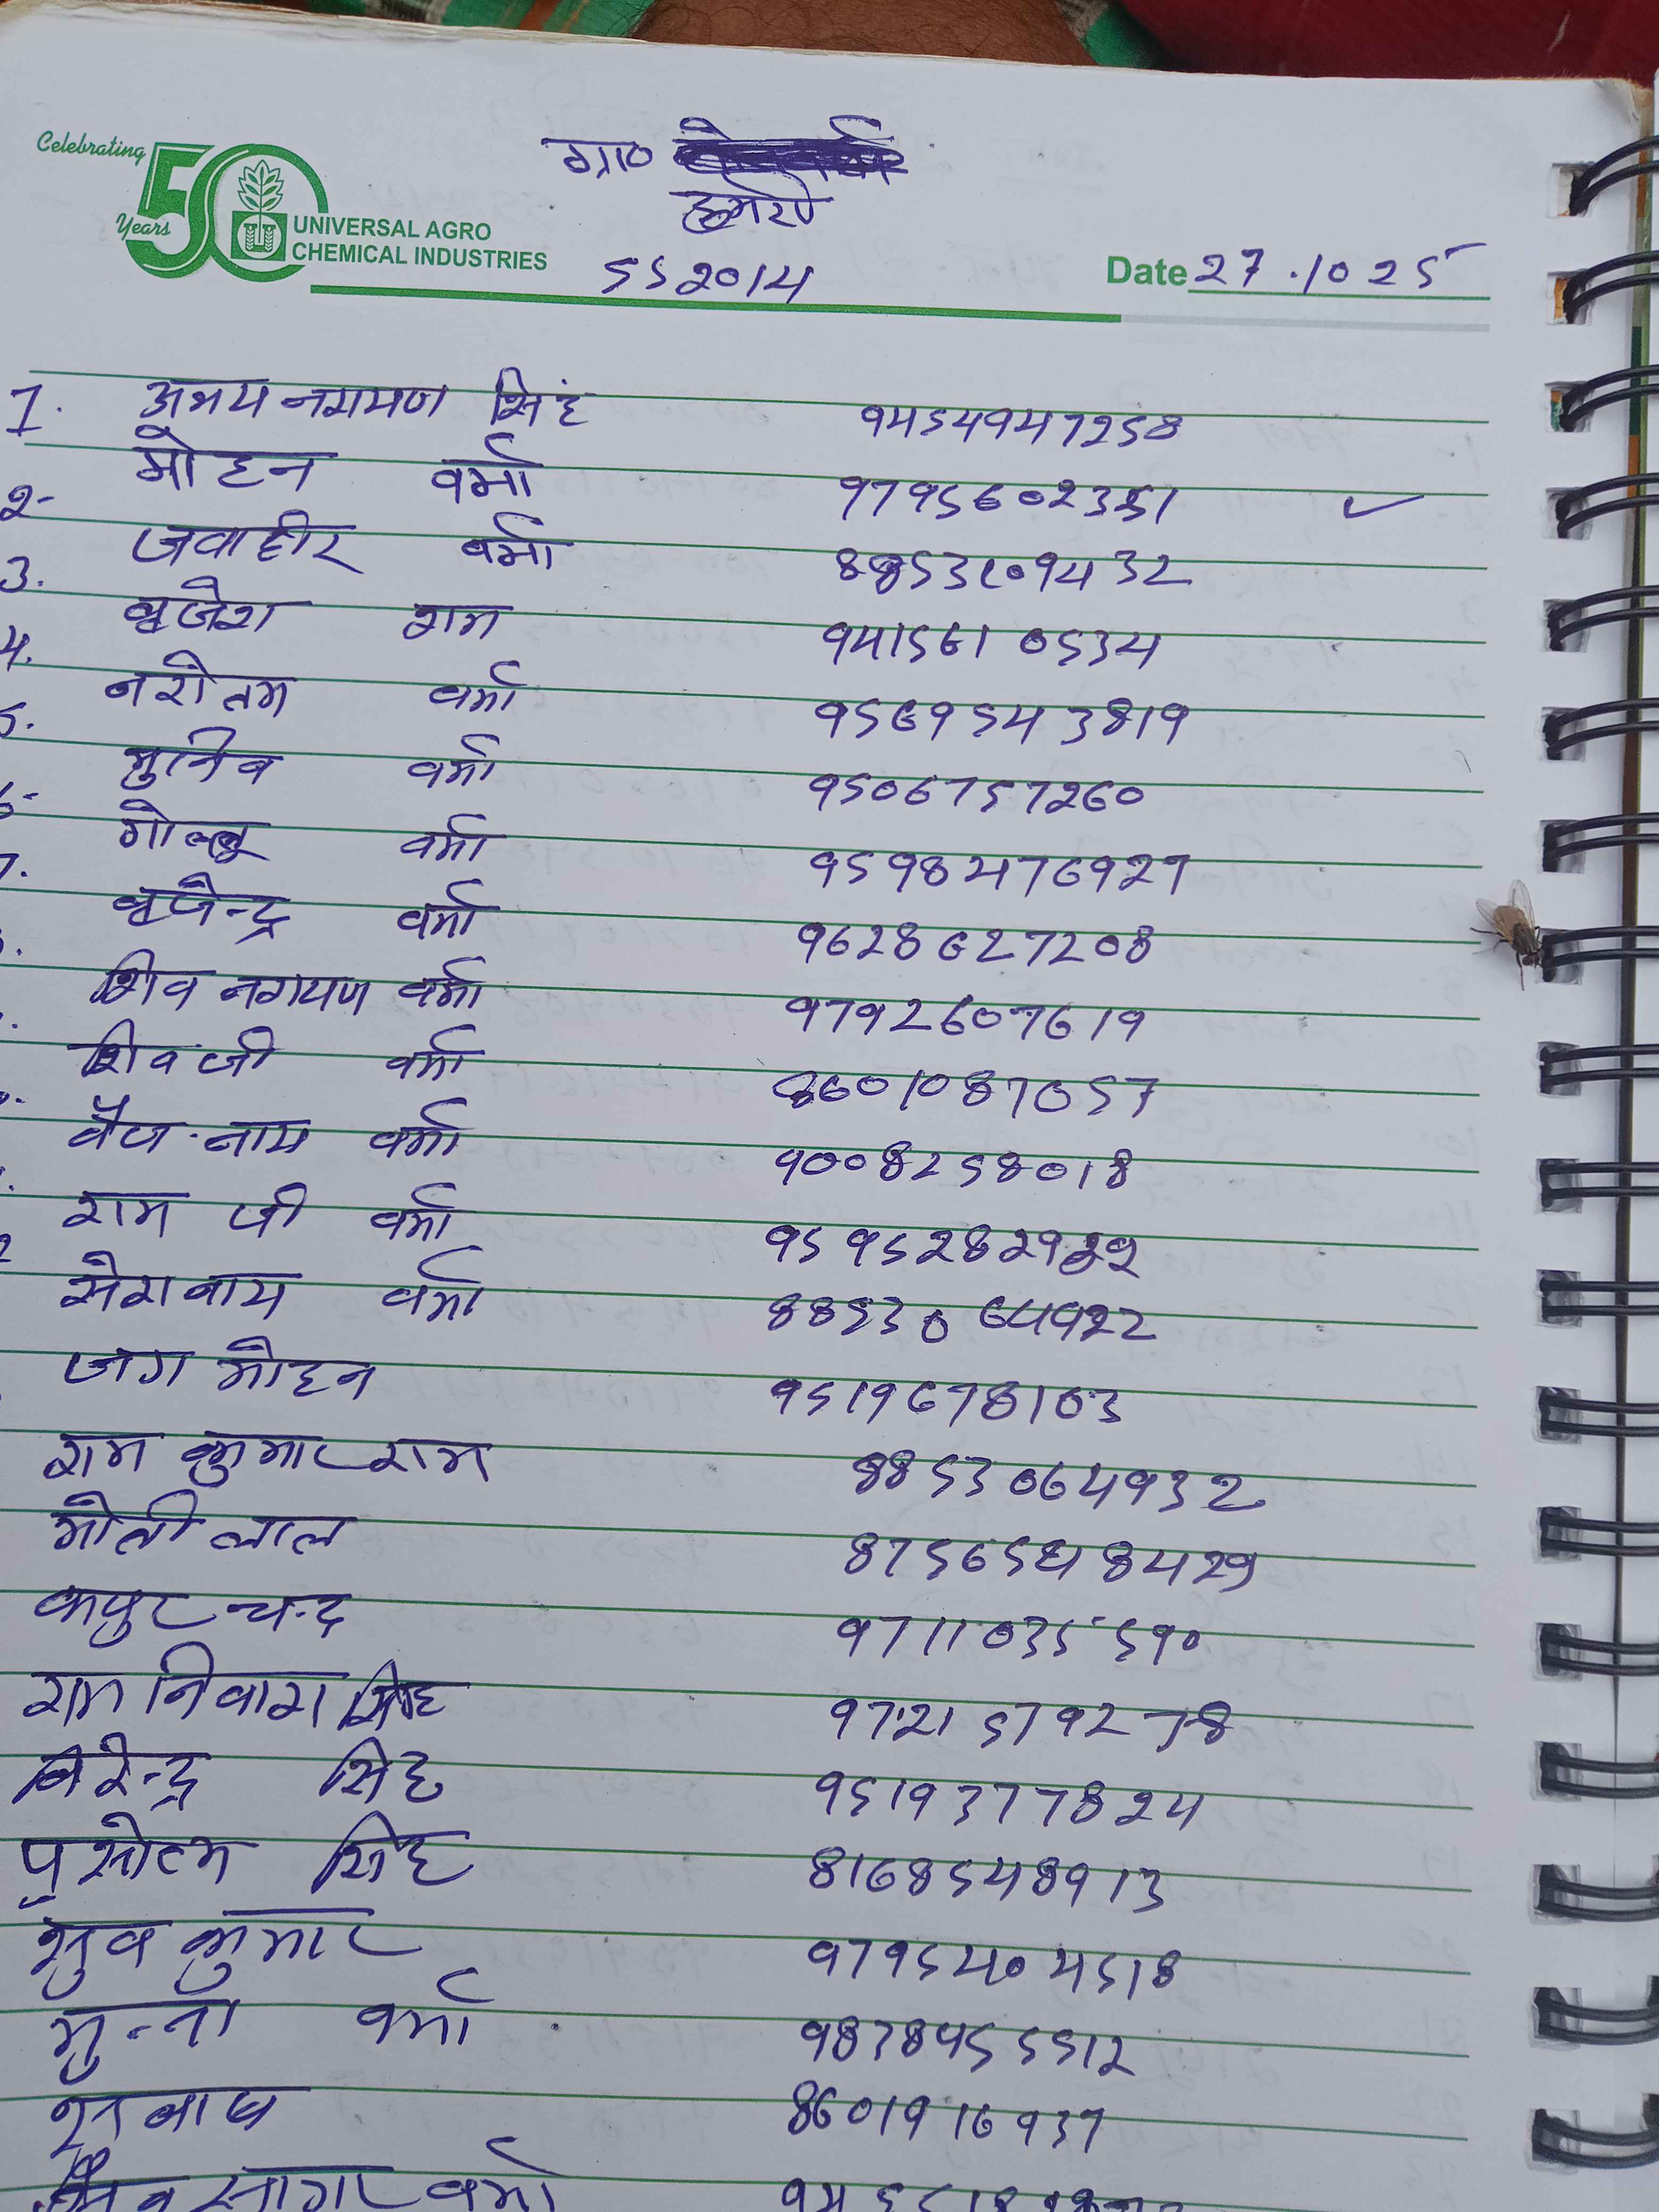 Celebrating
50
Years
UNIVERSAL AGRO
CHEMICAL INDUSTRIES
ग्रा०
SS2014
Date 27.10 25
1. अभय नरायण सिंह 9454947258
2- मोहन वर्मा 9795602351 ✓
3. जवाहीर वर्मा 8853109432
4. बृजेश राम 9415610534
5. नरोतम वर्मा 9569543819
6- मुनिब वर्मा 9506757260
7. गोल्लू वर्मा 9598476929
बृजेन्द्र वर्मा 9628627208
शिव नरायण वर्मा 9792607619
शिव जी वर्मा 8601087657
बैज नाथ वर्मा 9008258018
राम जी वर्मा 95952829
वर्मा 8853064922
जग मोहन 9519678103
राम कुमार राम 8853064932
मोती लाल 8756548429
कपुर चन्द 9711035590
राम निवास सिंह 9721579278
बिरेन्द्र सिंह 9519377824
पुरूसोत्म सिंह 8168548913
कुमार 9795404518
मुन्ना वर्मा 9878955512
8601916937
सागर वर्मा